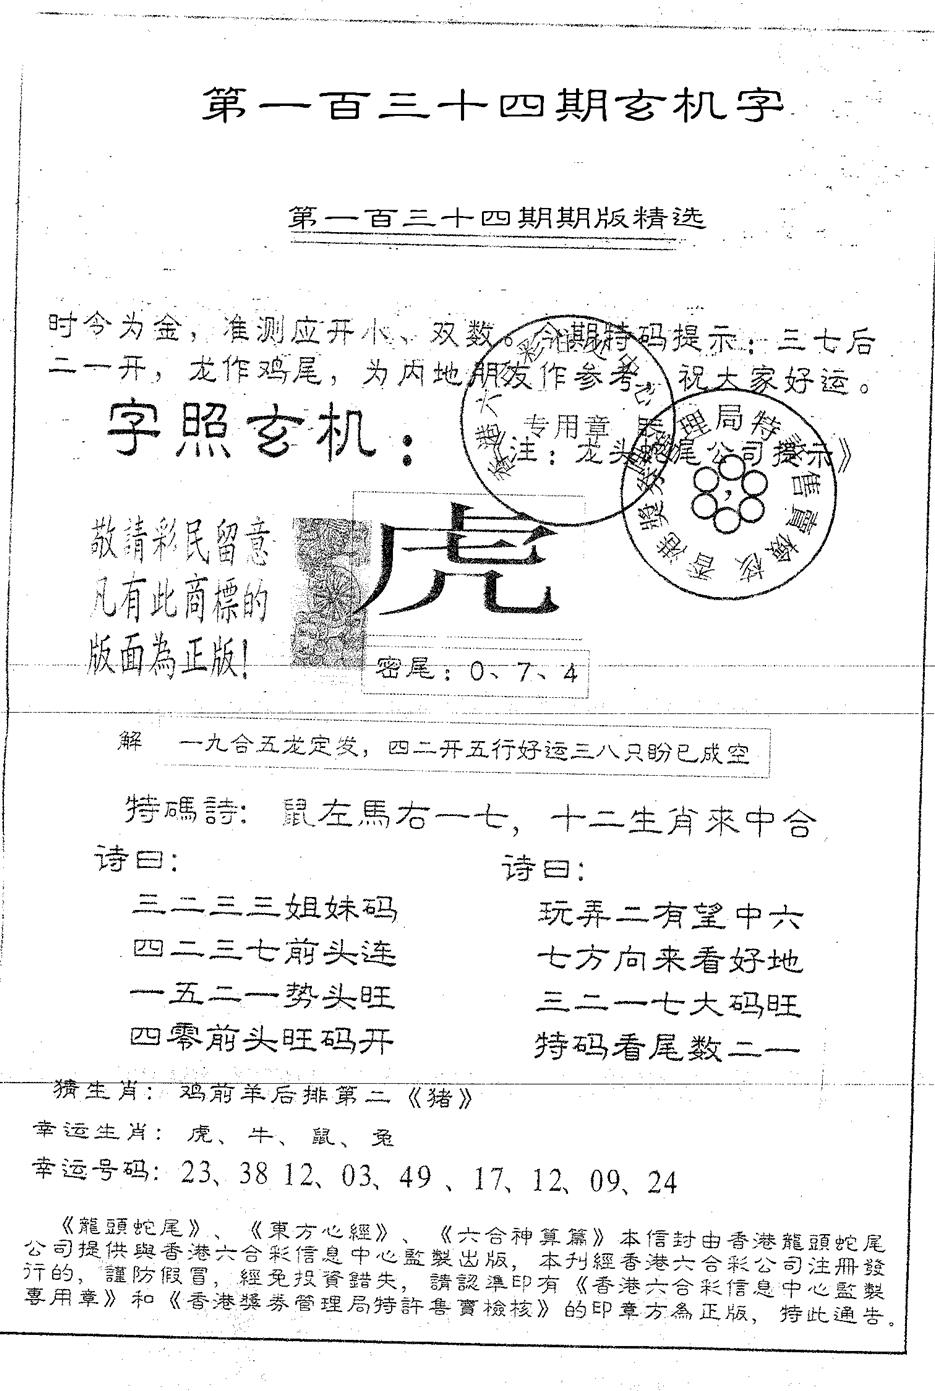 第一百三十四期玄机字
第一百三十四期期版精选
时今为金，准测应开小、双数。今期特码提示：三七后
二一开，龙作鸡尾，为内地朋友作参考，祝大家好运。
字照玄机：
专用章
注：龙头蛇尾公司提示》
香港獎券管理局特許售賣檢核
敬請彩民留意
凡有此商標的
版面為正版！
虎
密尾：0、7、4
解 一九合五龙定发，四二开五行好运三八只盼已成空
特碼詩：鼠左馬右一七，十二生肖來中合
诗曰：
三二三三姐妹码
四二三七前头连
一五二一势头旺
四零前头旺码开
诗曰：
玩弄二有望中六
七方向来看好地
三二一七大码旺
特码看尾数二一
猜生肖：鸡前羊后排第二《猪》
幸运生肖：虎、牛、鼠、兔
幸运号码：23、38 12、03、49、17、12、09、24
《龍頭蛇尾》、《東方心經》、《六合神算篇》本信封由香港龍頭蛇尾
公司提供與香港六合彩信息中心監製出版，本刊經香港六合彩公司注冊發
行的，謹防假冒，經免投資錯失，請認準印有《香港六合彩信息中心監製
專用章》和《香港獎券管理局特許售賣檢核》的印章方為正版，持此通告。